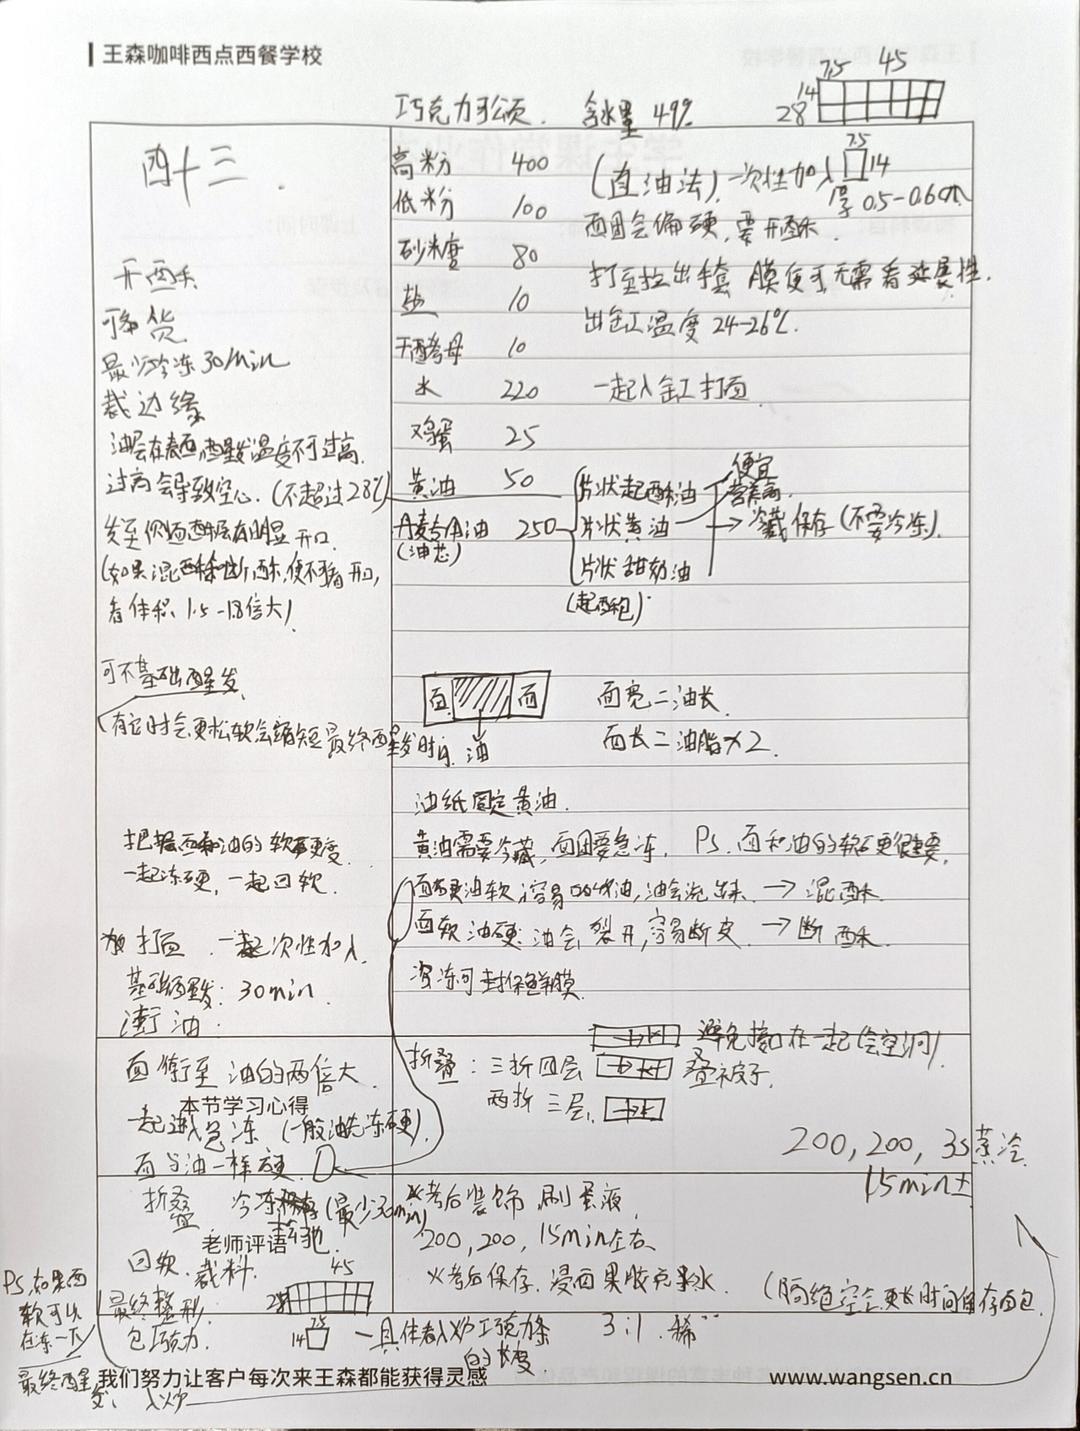 王森咖啡西点西餐学校
巧克力可颂 含水量 49%
7.5 45
14
28
西十三
高粉 400
低粉 100
砂糖 80
盐 10
干酵母 10
水 220
鸡蛋 25
黄油 50
片状油 250
(油芯)
7.5
14
厚 0.5-0.6cm
(直油法) 一次性加入
面团会偏硬, 要开酥
打至拉出手套膜便可, 无需看延展性.
出缸温度 24-26℃.
一起入缸打面
片状起酥油
片状黄油
片状甜奶油
(起酥包)
便宜
营养高
→ 冷藏保存 (不要冷冻).
开酥
最少冷冻 30min
裁边缘
油会在表面, 醒发温度不可过高.
过高会导致空心. (不超过28℃)
发至侧面酥层有明显开口.
(如果混酥和断酥, 便不看开口,
看体积 1.5-1.8倍大)
可不基础醒发
(有时会更松软会缩短最终醒发时间.
面 面
油
面宽二油长
面长二油脂×2.
油纸固定黄油.
黄油需要冷藏, 面团要急冻. PS. 面和油的软硬很重要.
面硬油软, 容易 油, 油会流出来. → 混酥
面软油硬 油会裂开, 容易断皮 → 断酥.
冷冻可封保鲜膜
把握面和油的软硬度
一起冻硬, 一起回软.
打面 一起次性加入.
基础醒发: 30min.
油
面 至油的两倍大.
本节学习心得
一起进急冻 (一般油先冻硬).
面与油一样硬
折叠: 三折四层 避免接口在一起(会空洞)
叠被子.
两折 三层.
200, 200, 3s蒸汽
15min±
折叠 冷冻 (最少30min)
松弛
老师评语
回软. 裁料.
45
28
7.5
14
最终整形.
包巧克力.
一具体看入炉巧克力条
的长度
PS. 如果面
软可以
在冻一下
最终醒
发、入炉
烤后装饰 刷蛋液,
200, 200, 15min左右
烤后保存. 浸面果胶克水
3:1. 稀
(隔绝空气, 更长时间保存面包.
我们努力让客户每次来王森都能获得灵感
www.wangsen.cn